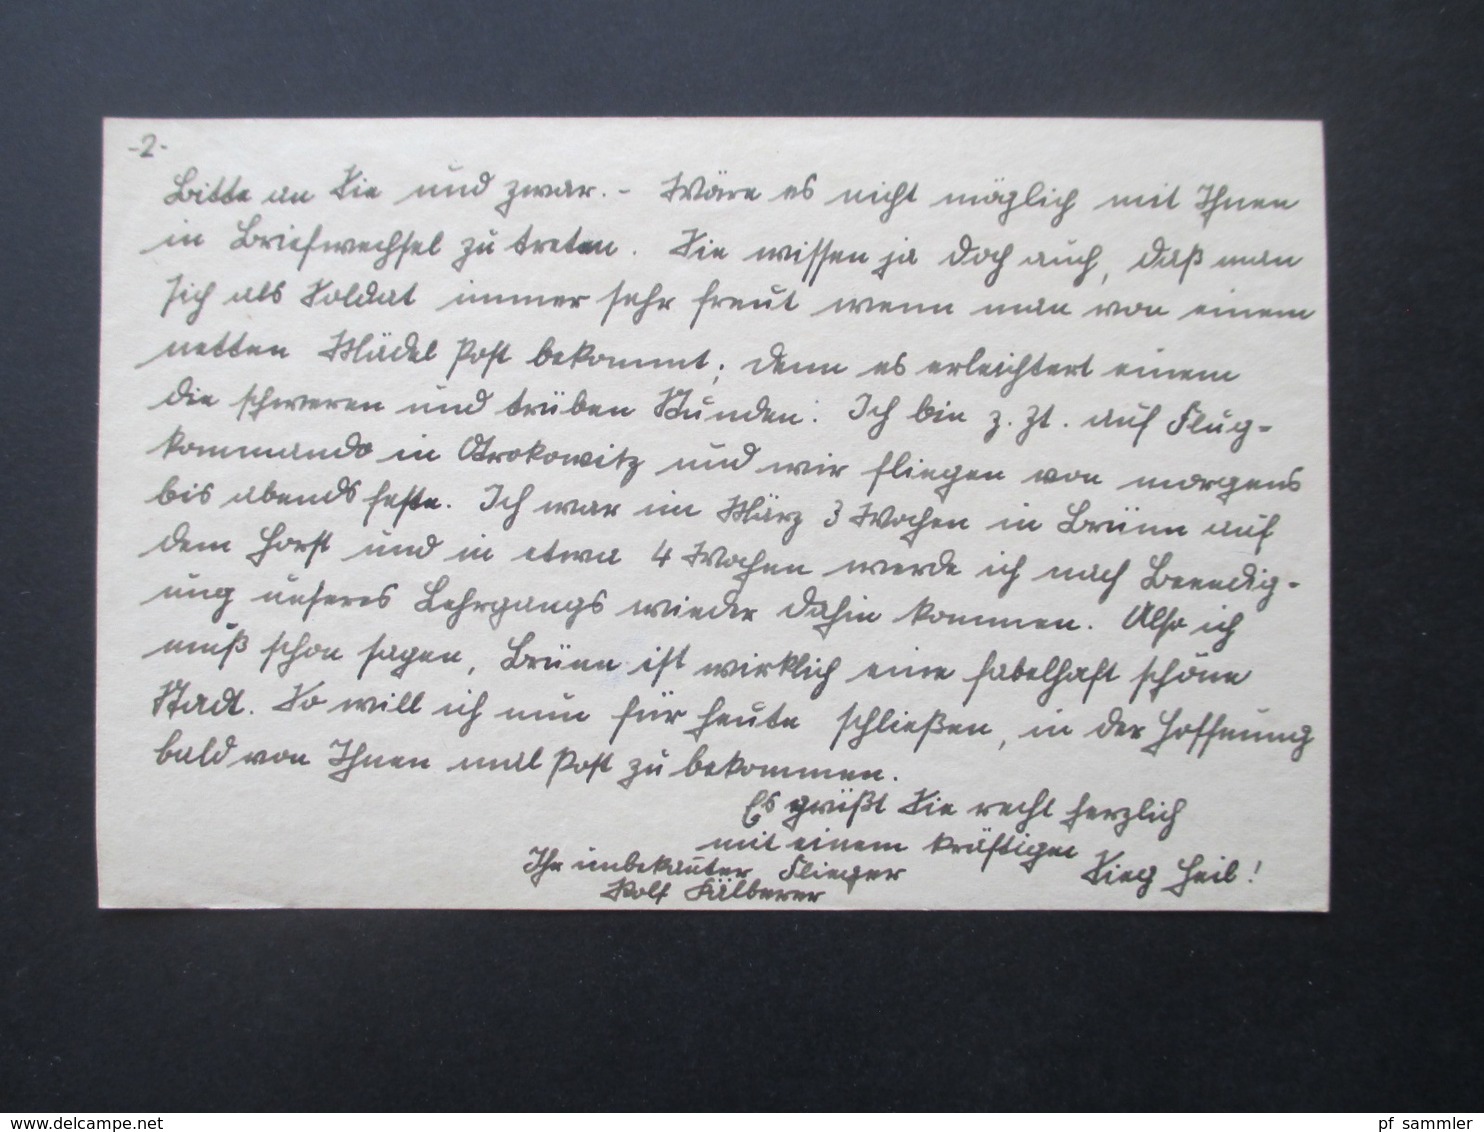 -2-
Bitte an Sie und zwar. - Wäre es nicht möglich mit Ihnen
in Briefwechsel zu treten. Sie wissen ja doch auch, daß man
sich als Soldat immer sehr freut wenn man von einem
netten Mädel Post bekommt; denn es erleichtert einem
die schweren und trüben Stunden. Ich bin z. Zt. auf Flug-
kommando in Otrokowitz und wir fliegen von morgens
bis abends feste. Ich war im März 3 Wochen in Brünn auf
dem Horst und in etwa 4 Wochen werde ich nach Beendig-
ung unseres Lehrgangs wieder dahin kommen. Also ich
muß schon sagen, Brünn ist wirklich eine fabelhaft schöne
Stadt. So will ich nun für heute schließen, in der Hoffnung
bald von Ihnen mal Post zu bekommen.
Es grüßt Sie recht herzlich
mit einem kräftigen
Sieg Heil!
Ihr unbekannter Flieger
Rolf Kälberer
delcampe.net
pf_sammler